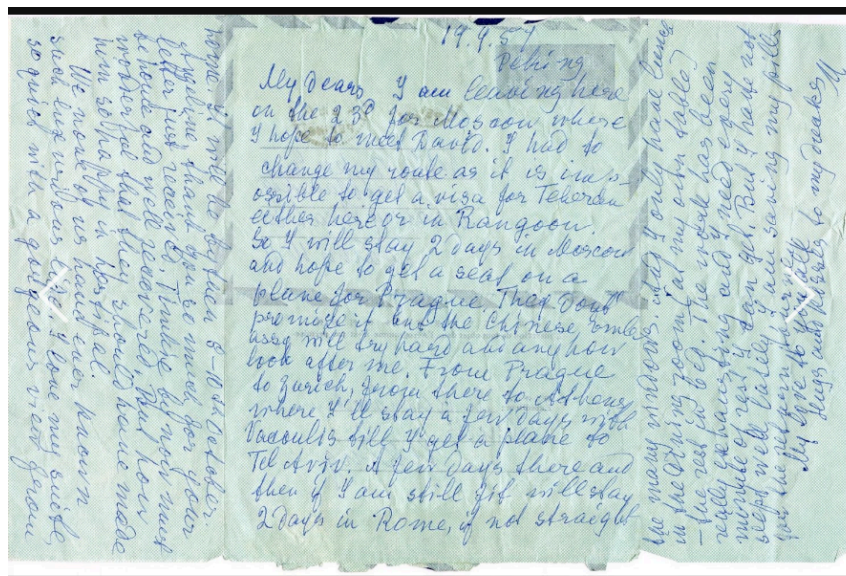 19.9.57
Peking
My Dears, I am leaving here
on the 23d for Moscow where
I hope to meet David. I had to
change my route as it is imp-
ossible to get a visa for Teheran
either here or in Rangoon.
So I will stay 2 days in Moscow
and hope to get a seat on a
plane for Prague. They don't
promise it but the Chinese emb-
assy will try hard and anyhow
look after me. From Prague
to Zurich, from there to Athens
where I'll stay a few days with
till I get a plane to
Tel Aviv. A few days there and
then if I am still fit will stay
2 days in Rome, if not straight
home. It will be by then 8-10th October.
thank you so much for your
letter just received. by now must
be home and well recovered. But how
wonderful that they should have made
him so happy in hospital.
We none of us have ever known
such luxurious life. I love my suite,
so quiet with a gorgeous view from
the many windows. And I only have lunch
in the dining room (at my own table)
- the rest in bed. The work has been
really exhausting and I need every
minute of rest I can get. But I have not
slept well lately. I am saving my pills
for the return journey.
My love to you all
Hugs and kisses to my